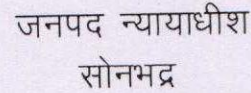 जनपद न्यायाधीश
सोनभद्र